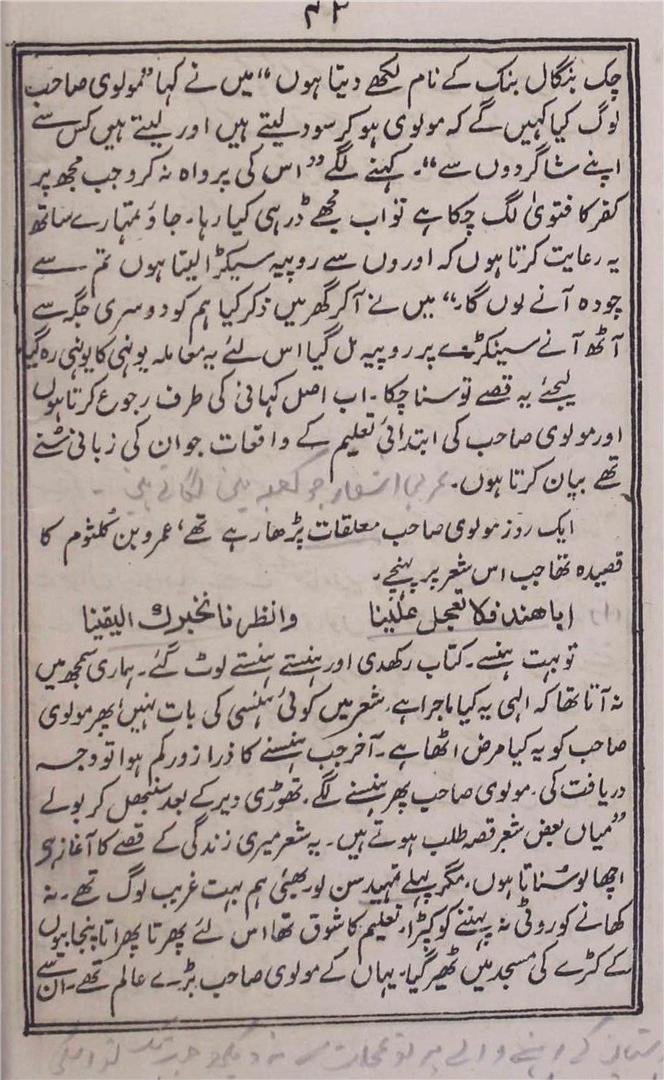 ۴۲
چک بنگال بنک کے نام لکھے دیتا ہوں“ میں نے کہا ”مولوی صاحب
لوگ کیا کہیں گے کہ مولوی ہو کر سود لیتے ہیں اور لیتے ہیں کس سے
اپنے شاگردوں سے“۔ کہنے لگے ”اس کی پرواہ نہ کرو جب مجھ پر
کفر کا فتویٰ لگ چکا ہے تو اب مجھے ڈر ہی کیا رہا۔ جاؤ تمہارے ساتھ
یہ رعایت کرتا ہوں کہ اوروں سے روپیہ سیکڑا لیتا ہوں تم سے
چودہ آنے لوں گا۔“ میں نے آکر گھر میں ذکر کیا ہم کو دوسری جگہ سے
آٹھ آنے سینکڑے پر روپیہ مل گیا اس لئے یہ معاملہ یونہی کا یونہی رہ گیا
لیجئے یہ قصے تو سنا چکا۔ اب اصل کہانی کی طرف رجوع کرتا ہوں
اور مولوی صاحب کی ابتدائی تعلیم کے واقعات جو ان کی زبانی سُنے
تھے بیان کرتا ہوں۔
ایک روز مولوی صاحب معلقات پڑھا رہے تھے، عمرو بن کلثوم کا
قصیدہ تھا جب اس شعر پر پہنچے۔
اباھند فلا تعجل علینا وانظرنا نخبرك الیقینا
تو بہت ہنسے۔ کتاب رکھدی اور ہنستے ہنستے لوٹ گئے۔ ہماری سمجھ میں
نہ آتا تھا کہ الٰہی یہ کیا ماجرا ہے، شعر میں کوئی ہنسی کی بات نہیں پھر مولوی
صاحب کو یہ کیا مرض اٹھا ہے۔ آخر جب ہنسنے کا ذرا زور کم ہوا تو وجہ
دریافت کی، مولوی صاحب پھر ہنسنے لگے، تھوڑی دیر کے بعد سنبھل کر بولے
”میاں بعض شعر قصہ طلب ہوتے ہیں۔ یہ شعر میری زندگی کے قصے کا آغاز ہے
اچھا لو سُناتا ہوں، مگر پہلے تمہید سن لو بھئی ہم بہت غریب لوگ تھے۔ نہ
کھانے کو روٹی نہ پہننے کو کپڑا، تعلیم کا شوق تھا اس لئے پھرتا پھراتا پنجابیوں
کے کٹرے کی مسجد میں ٹھیر گیا۔ یہاں کے مولوی صاحب بڑے عالم تھے۔ ان سے